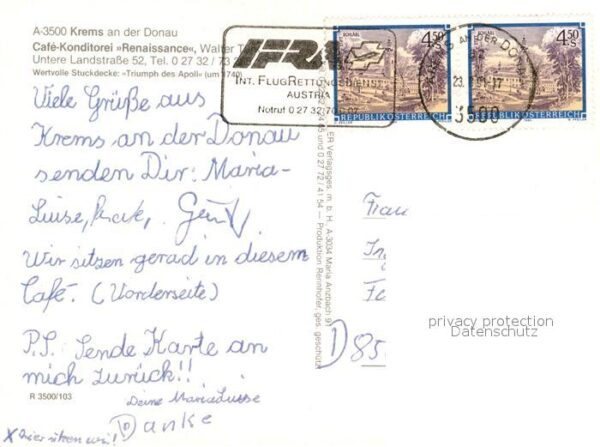 A-3500 Krems an der Donau
Café-Konditorei »Renaissance«, Walter
Untere Landstraße 52, Tel. 0 27 32 /
Wertvolle Stuckdecke: »Triumph des Apoll« (um 1740)
IFRA
INT. FLUGRETTUNGSDIENST
AUSTRIA
Notruf 0 27 32/70
SCHLÄGL
4.50
S
REPUBLIK ÖSTERREICH
SCHLÄGL
4.50
S
REPUBLIK ÖSTERREICH
AN DER DONAU
3500
Viele Grüße aus
Krems an der Donau
senden Dir: Maria-
Luise,
Wir sitzen gerad in diesem
Café. (Vorderseite)
P.S. Sende Karte an
mich zurück!!
Deine MariaLuise
Danke
x hier sitzen wir!
R 3500/103
ER Verlagsges. m. b. H. A-3034 Maria Anzbach 91
45 und 0 27 72 / 41 54 — Produktion Rennhofer, ges. geschützt
Frau
D 85
privacy protection
Datenschutz